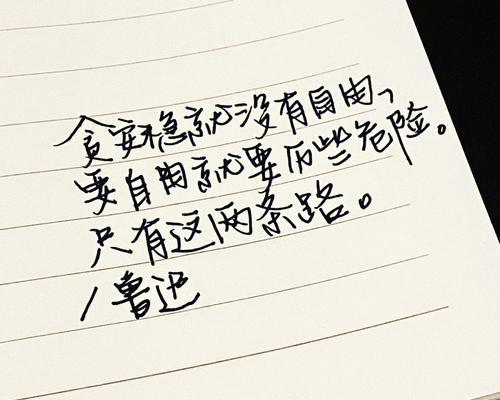 贪安稳就没有自由、
要自由就要历些危险。
只有这两条路。
/鲁迅